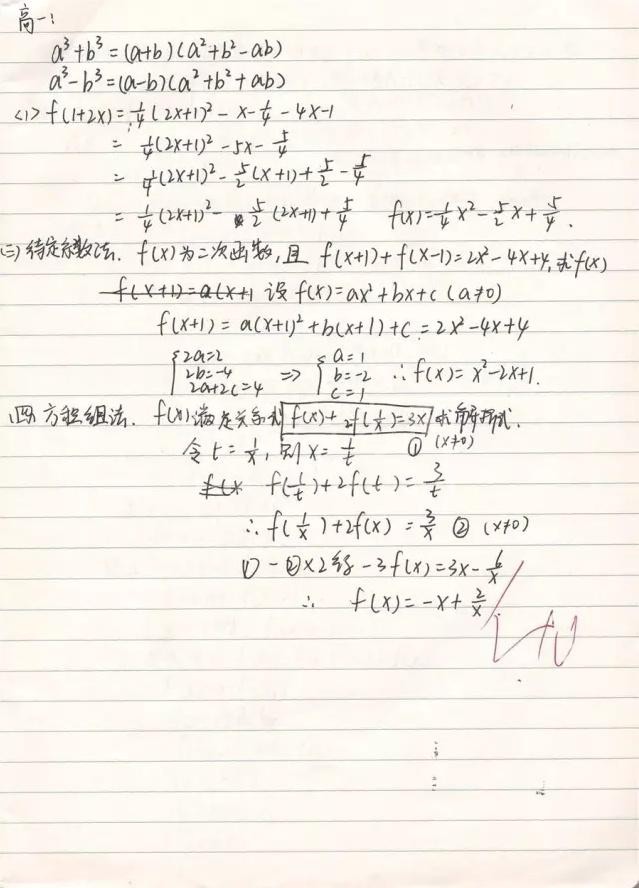 高一:
a³+b³=(a+b)(a²+b²-ab)
a³-b³=(a-b)(a²+b²+ab)
<1> f(1+2x)=¼(2x+1)²-x-¼-4x-1
=¼(2x+1)²-5x-5/4
=¼(2x+1)²-5/2(x+1)+5/2-5/4
=¼(2x+1)²-5/2(2x+1)+5/4 f(x)=¼x²-5/2x+5/4.
(三)待定系数法. f(x)为二次函数,且 f(x+1)+f(x-1)=2x²-4x+4,求f(x)
f(x+1)=a(x+1 设 f(x)=ax²+bx+c (a≠0)
f(x+1)=a(x+1)²+b(x+1)+c=2x²-4x+4
{2a=2 2b=-4 2a+2c=4 ⇒ {a=1 b=-2 c=1 ∴f(x)=x²-2x+1.
(四)方程组法. f(x)满足关系式 f(x)+2f(1/x)=3x 求解析式.
令t=1/x,则x=1/t ① (x≠0)
f(1/t)+2f(t)=3/t
∴f(1/x)+2f(x)=3/x ② (x≠0)
①-②×2得-3f(x)=3x-6/x
∴ f(x)=-x+2/x